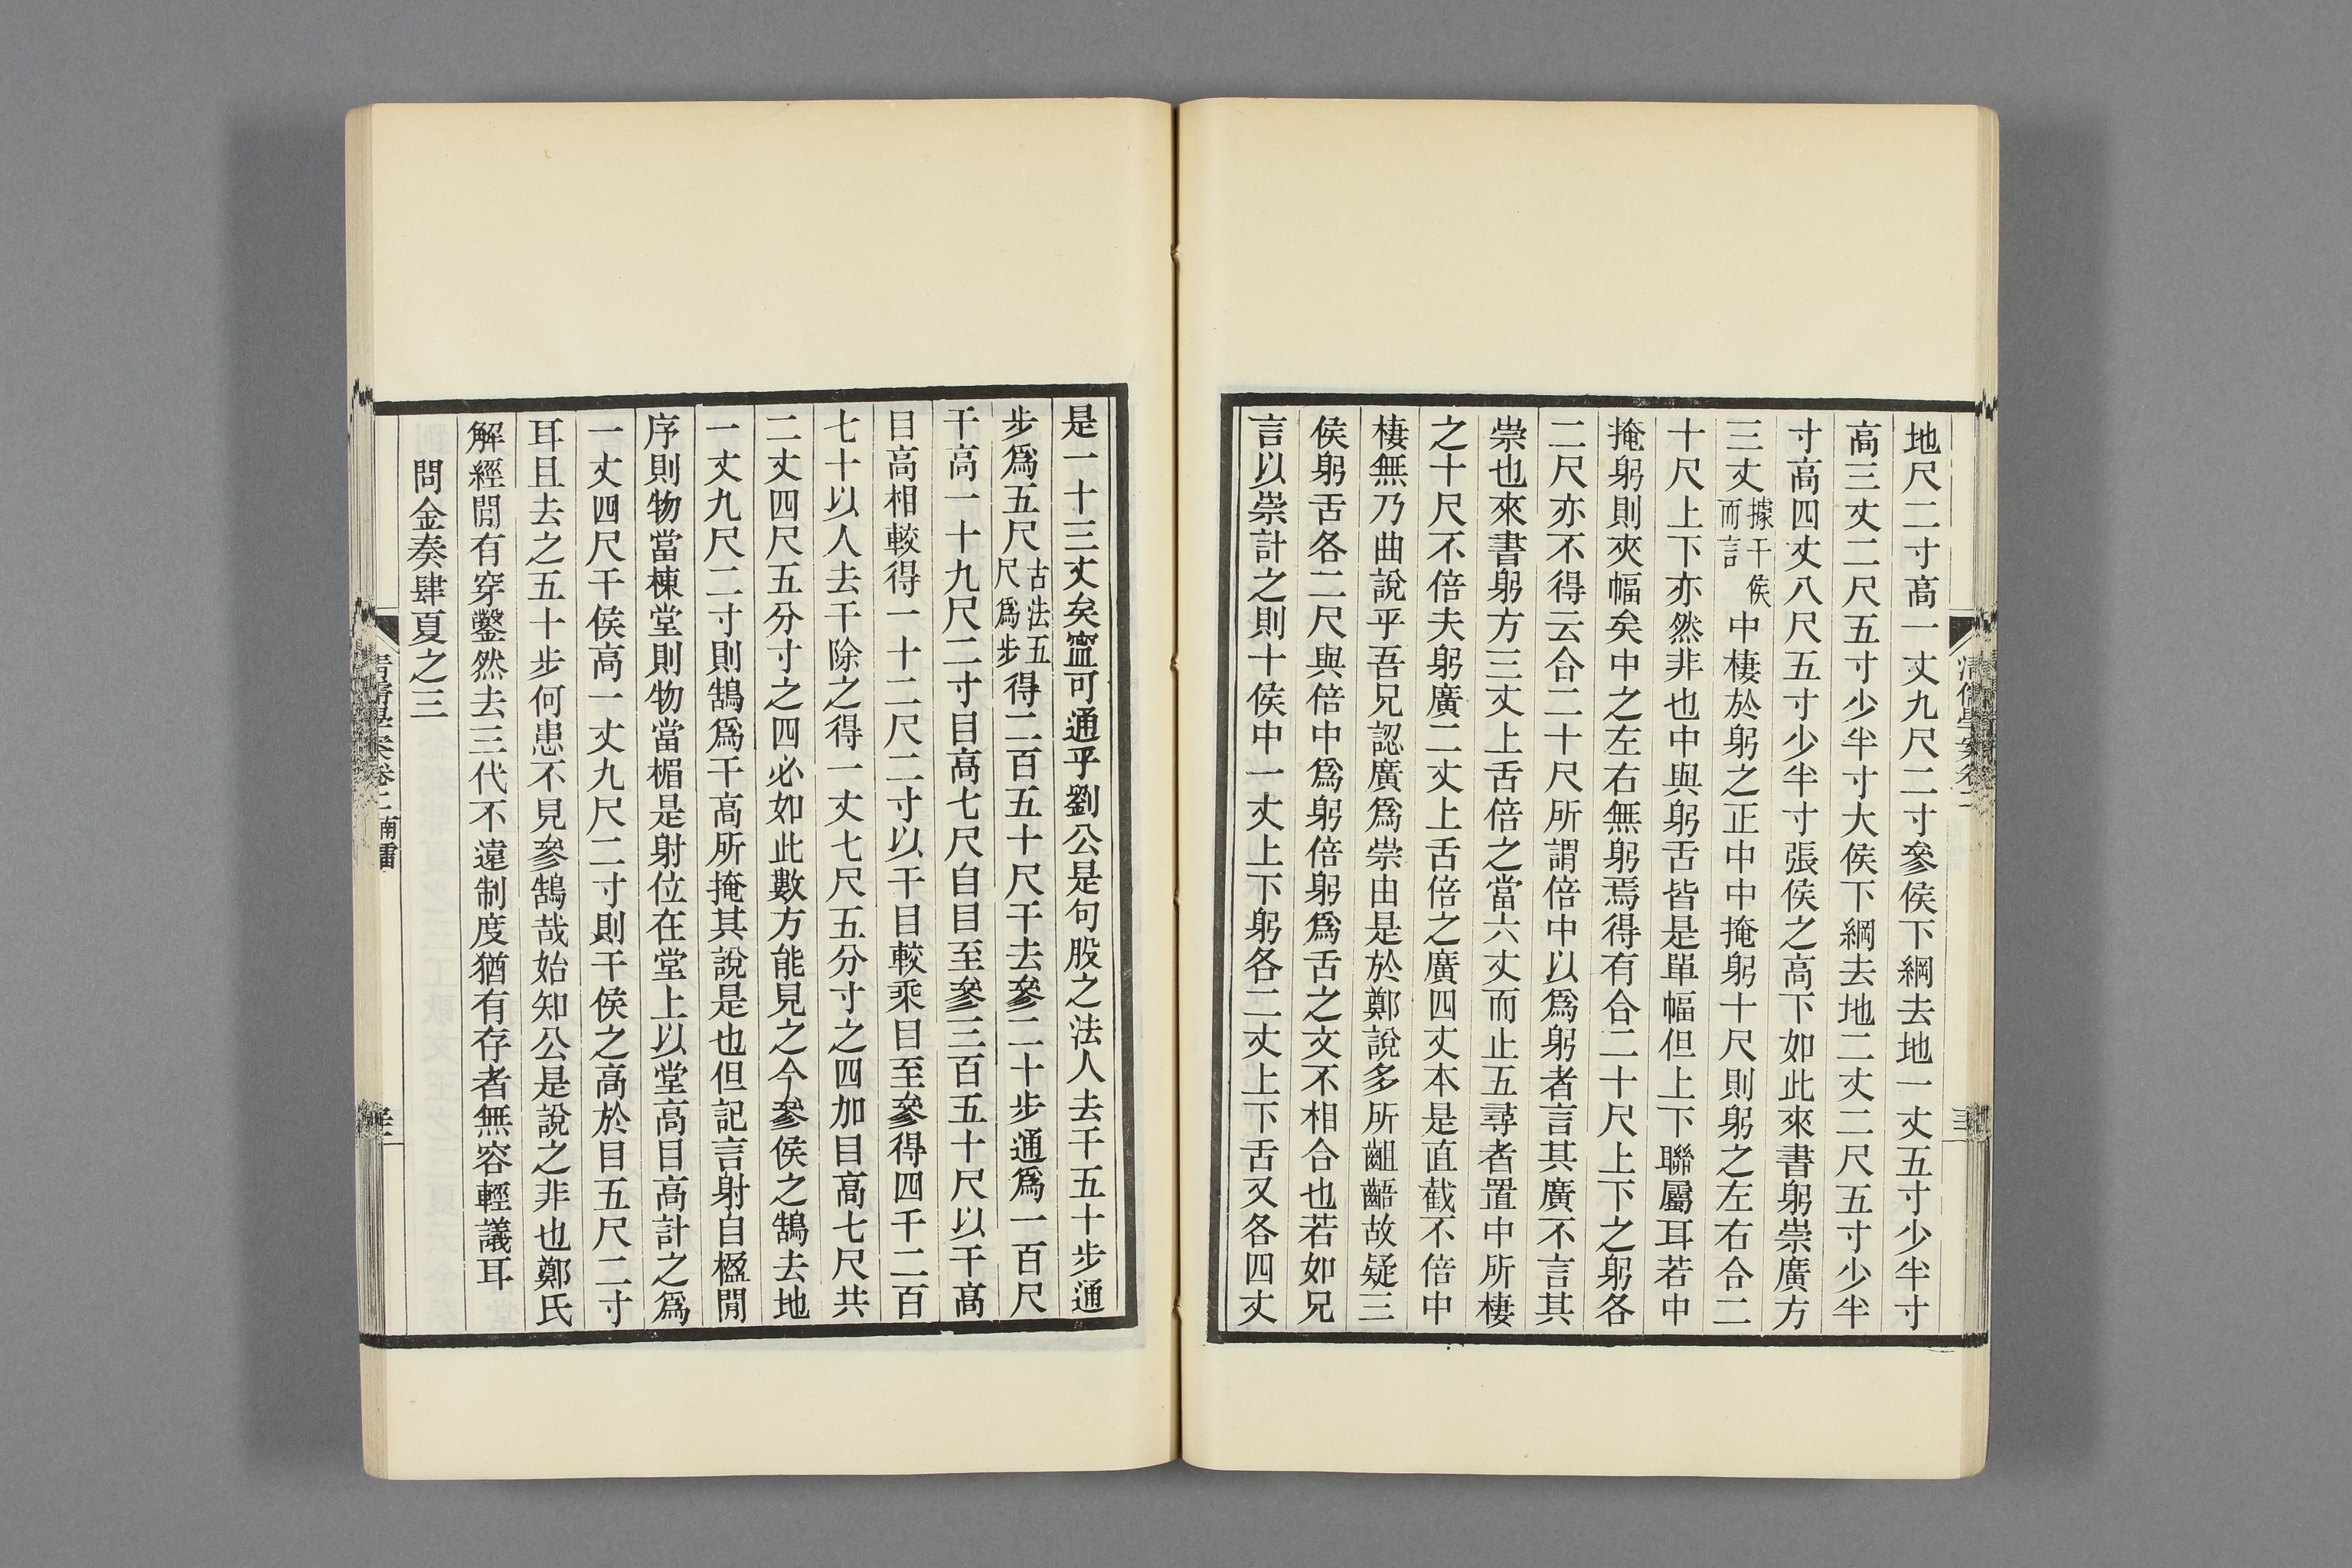 地尺二寸高一丈九尺二寸參侯下綱去地一丈五寸少半寸
高三丈二尺五寸少半寸大侯下綱去地二丈二尺五寸少半
寸高四丈八尺五寸少半寸張侯之高下如此來書躬崇廣方
三丈據干侯而言中棲於躬之正中中掩躬十尺則躬之左右合二
十尺上下亦然非也中與躬舌皆是單幅但上下聯屬耳若中
掩躬則夾幅矣中之左右無躬焉得有合二十尺上下之躬各
二尺亦不得云合二十尺所謂倍中以爲躬者言其廣不言其
崇也來書躬方三丈上舌倍之當六丈而止五尋者置中所棲
之十尺不倍夫躬廣二丈上舌倍之廣四丈本是直截不倍中
棲無乃曲說乎吾兄認廣爲崇由是於鄭說多所齟齬故疑三
侯躬舌各二尺與倍中爲躬倍躬爲舌之文不相合也若如兄
言以崇計之則十侯中一丈上下躬各二丈上下舌又各四丈
是一十三丈矣寍可通乎劉公是句股之法人去干五十步通
步爲五尺古法五尺爲步得二百五十尺干去參二十步通爲一百尺
干高一十九尺二寸目高七尺自目至參三百五十尺以干高
目高相較得一十二尺二寸以干目較乘目至參得四千二百
七十以人去干除之得一丈七尺五分寸之四加目高七尺共
二丈四尺五分寸之四必如此數方能見之今參侯之鵠去地
一丈九尺二寸則鵠爲干高所掩其說是也但記言射自楹閒
序則物當棟堂則物當楣是射位在堂上以堂高目高計之爲
一丈四尺干侯高一丈九尺二寸則干侯之高於目五尺二寸
耳且去之五十步何患不見參鵠哉始知公是說之非也鄭氏
解經閒有穿鑿然去三代不遠制度猶有存者無容輕議耳
問金奏肆夏之三